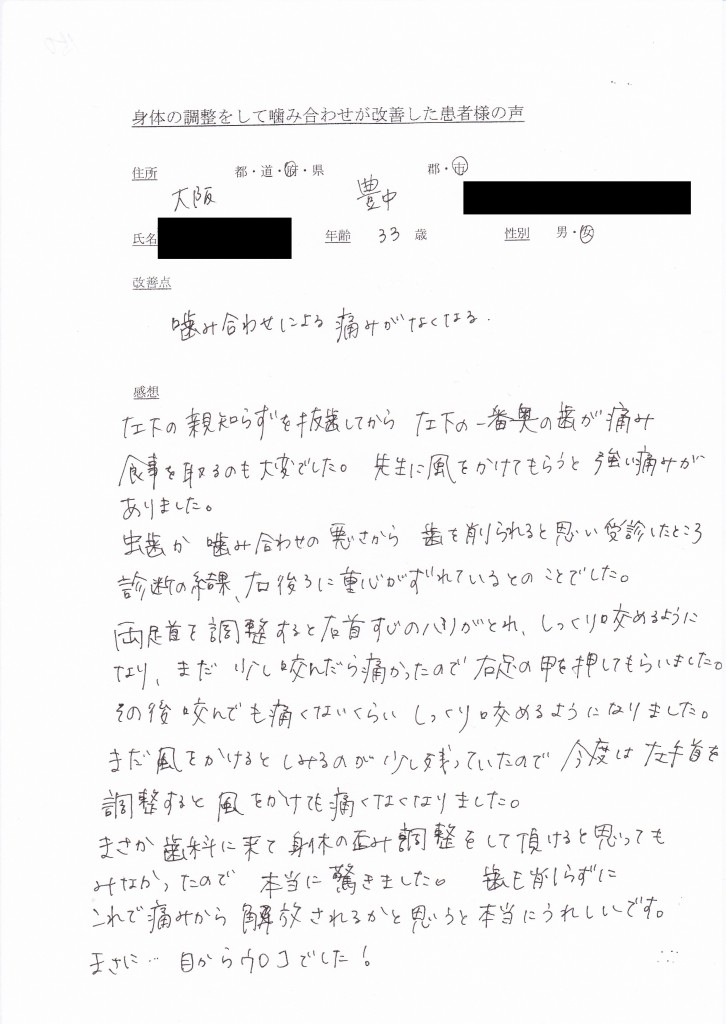 身体の調整をして噛み合わせが改善した患者様の声
住所 都・道・府・県 郡・市
大阪 豊中
氏名 年齢 33 歳 性別 男・女
改善点
噛み合わせによる痛みがなくなる.
感想
左下の親知らずを抜歯してから 左下の一番奥の歯が痛み
食事を取るのも大変でした。 先生に風をかけてもらうと 強い痛みが
ありました。
虫歯か 噛み合わせの悪さから 歯を削られると思い受診したところ
診断の結果、右後ろに重心がずれているとのことでした。
両足首を調整すると右首すじのハリがとれ、しっくり咬めるように
なり、まだ 少し咬んだら痛かったので 右足の甲を押してもらいました。
その後 咬んでも痛くないくらい しっくり咬めるようになりました。
まだ風をかけるとしみるのが少し残っていたので 今度は左手首を
調整すると 風をかけても痛くなくなりました。
まさか歯科に来て身体の歪み調整をして頂けると思っても
みなかったので 本当に驚きました。 歯も削らずに
これで痛みから解放されるかと思うと本当にうれしいです。
まさに… 目からウロコでした!